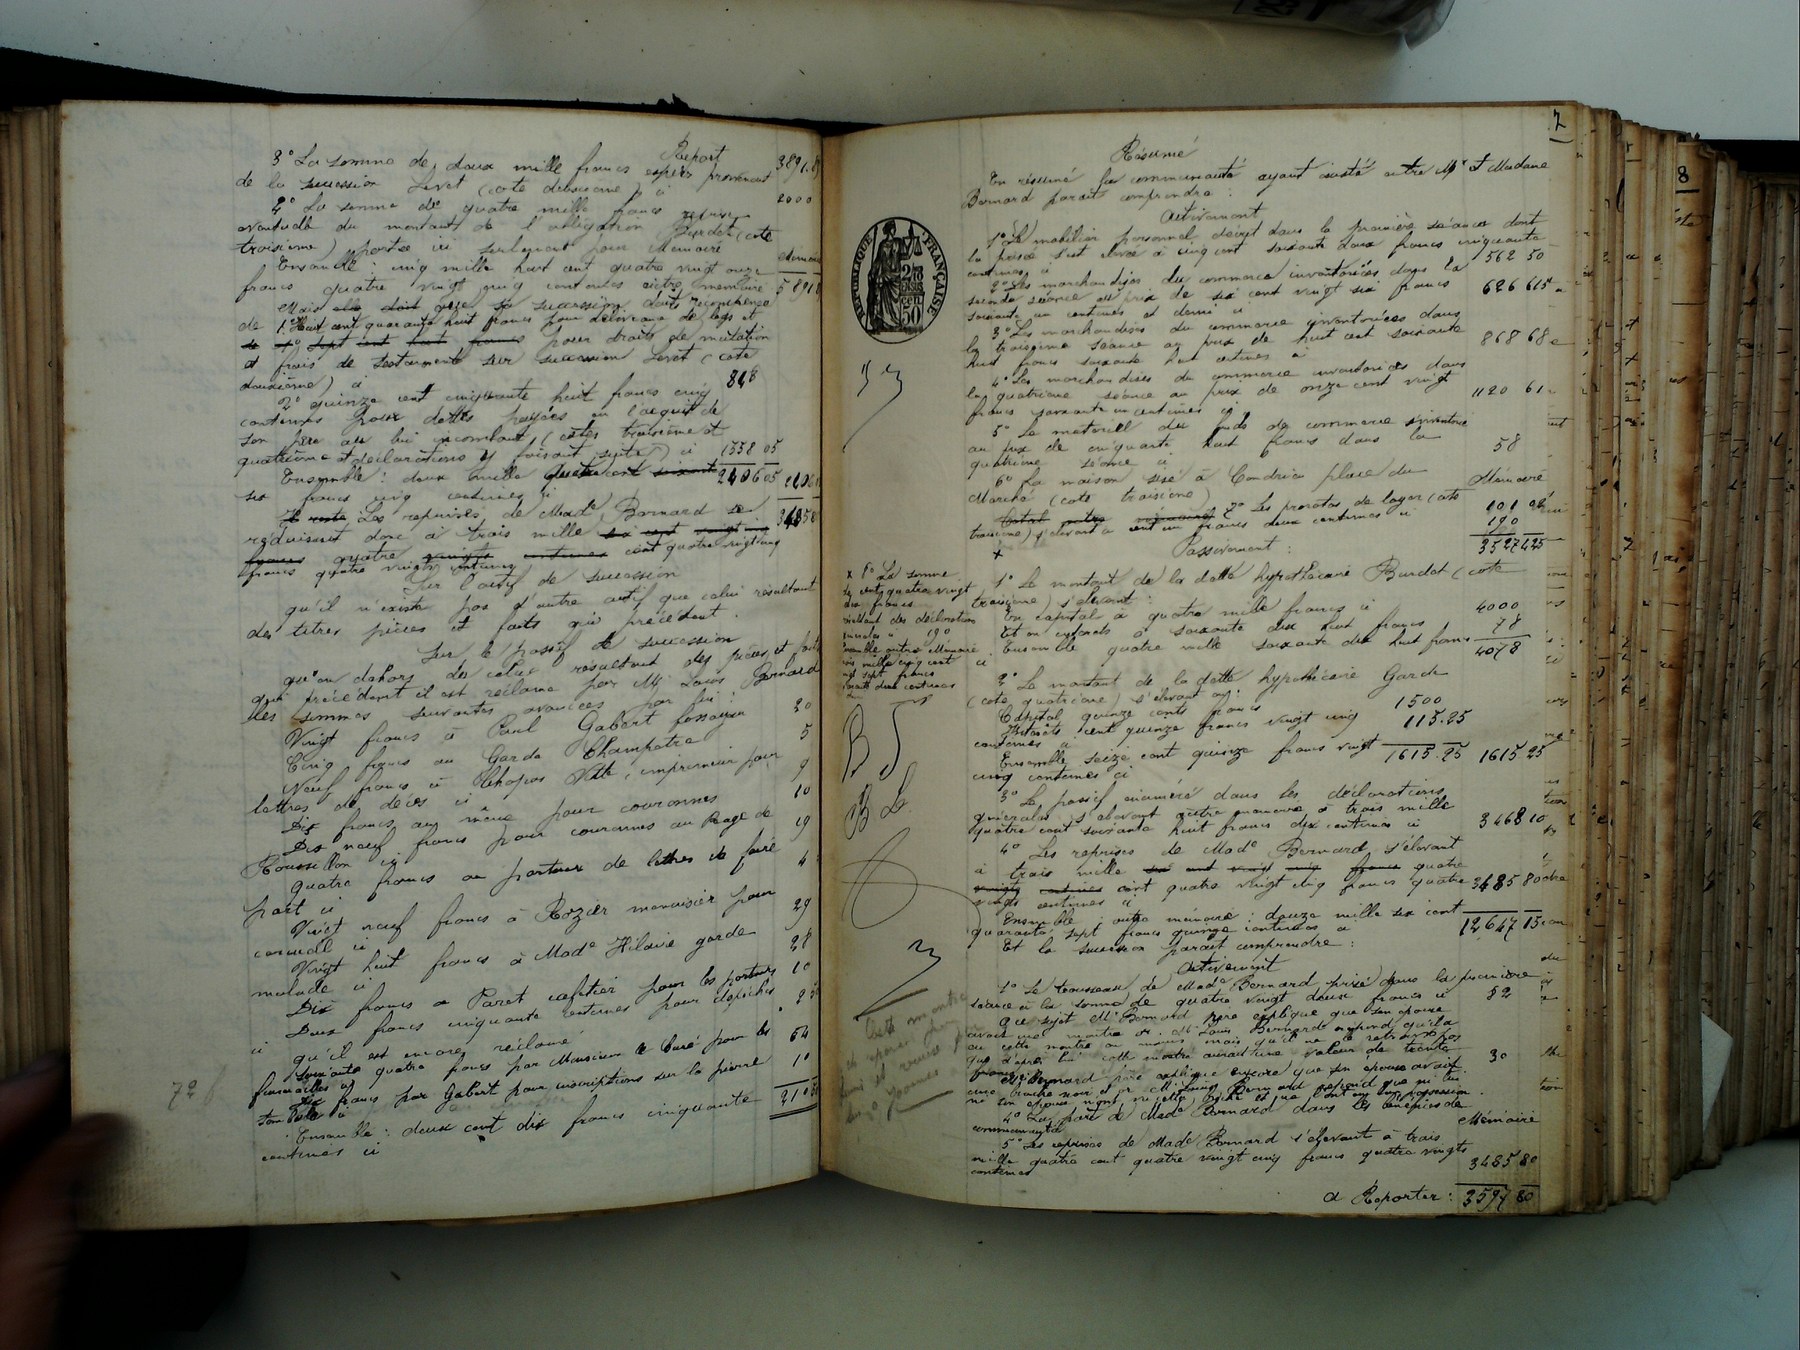 Report 3891.85
3° La somme de deux mille francs espèces provenant
de la succession Levet (cote deuxième) ci 2000
4° La somme de quatre mille francs reprise
éventuelle du montant de l'obligation Burdet (cote
troisième) portée ici seulement pour Mémoire Mémoire
Ensemble : cinq mille huit cent quatre vingt onze
francs quatre vingt cinq centimes outre mémoire 5891 8
Mais que sa succession doit récompense
de 1° Huit cent quarante huit francs pour délivrance de legs et
pour droits de mutation
et frais de testament sur succession Levet (cote
deuxième) ci 848
2° quinze cent cinquante huit francs cinq
centimes pour dettes payées en l'acquit de
son père ou lui incombant, (cotes troisième et
quatrième et déclarations y faisant suite) ci 1558 05
Ensemble : deux mille quatre cent 2406 05
six francs cinq centimes ci
Les reprises de Made Bernard se
réduisent donc à trois mille
quatre cent quatre vingt cinq
francs quatre vingts centimes
Sur l'actif de succession
qu'il n'existe pas d'autre actif que celui résultant
des titres pièces et faits qui précèdent.
Sur le passif de succession
qu'en dehors de celui résultant des pièces et faits
qui précèdent il est réclamé par Mr Louis Bernard
les sommes suivantes avancées par lui :
Vingt francs à Paul Gabert fossoyeur 20
Cinq francs au Garde Champêtre 5
Neuf francs à imprimeur pour
lettres de décès ci 9
Dix francs au même pour couronnes 10
Dix neuf francs pour couronnes au Péage de
Roussillon ci 19
Quatre francs au porteur de lettres de faire
part ci 4
Vingt neuf francs à Rozier menuisier pour
cercueil ci 29
Vingt huit francs à Made Hilaire garde
malade ci 28
Dix francs à Paret cafetier pour les porteurs 10
Deux francs cinquante centimes pour dépêches
ci 2 50
qu'il est encore réclamé
Soixante quatre francs par Monsieur le Curé pour les
funérailles ci 64
Dix francs par Gabert pour inscriptions sur la pierre
tombale ci 10
Ensemble : deux cent dix francs cinquante 210 50
centimes ci
7
Résumé
En résumé la communauté ayant existé entre Mr et Madame
Bernard paraît comprendre :
Activement
1° Le mobilier personnel décrit dans la première séance dont
la prisée s'est élevée à cinq cent soixante deux francs cinquante
centimes ci 562 50
2° Les marchandises du commerce inventoriées dans la
seconde séance au prix de six cent vingt six francs
soixante un centimes et demi ci 626 615
3° Les marchandises du commerce inventoriées dans
la troisième séance au prix de huit cent soixante
huit francs soixante huit centimes ci 868 68
4° Les marchandises du commerce inventoriées dans
la quatrième séance au prix de onze cent vingt
francs soixante un centimes ci 1120 61
5° Le matériel du fonds de commerce inventorié
au prix de cinquante huit francs dans la
quatrième séance ci 58
6° La maison sise à Condrieu place du
Marché (cote troisième) Mémoire
7° Les proratas de loyer (cote
troisième) s'élevant à cent un francs deux centimes ci 101 02
190
3527 425
Passivement :
RÉPUBLIQUE FRANÇAISE
2/10
EN SUS
cen
50
x 8° La somme
de cent quatre vingt
dix francs
résultant des déclarations
190
Ensemble outre Mémoire
trois mille cinq cent
vingt sept francs
quarante deux centimes
1° Le montant de la dette hypothécaire Burdet (cote
troisième) s'élevant :
En capital à quatre mille francs ci 4000
Et en intérêts à soixante dix huit francs 78
Ensemble quatre mille soixante dix huit francs
ci 4078
2° Le montant de la dette hypothécaire Garde
(cote quatrième) s'élevant en :
Capital quinze cents francs 1500
Intérêts cent quinze francs vingt cinq
centimes ci 115.25
Ensemble seize cent quinze francs vingt 1615.25 1615 25
cinq centimes ci
3° Le passif énuméré dans les déclarations
générales s'élevant outre mémoire à trois mille
quatre cent soixante huit francs dix centimes ci 3468 10
4° Les reprises de Made Bernard s'élevant
à trois mille quatre
cent quatre vingt cinq francs quatre 3485 80
vingts centimes ci
Ensemble outre mémoire : douze mille six cent
quarante sept francs quinze centimes ci 12647 15
Et la succession paraît comprendre :
Activement
1° Le trousseau de Made Bernard prisé dans la première
séance à la somme de quatre vingt deux francs ci 82
A ce sujet Mr Bernard père explique que son épouse
avait une montre or. Mr Louis Bernard répond qu'il a
eu cette montre en mains mais qu'il ne la retrouve pas
que d'après lui cette montre aurait une valeur de trente
francs 30
Mr Bernard père explique encore que son épouse avait
une broche Mr Louis Bernard répond que ni lui
ni son épouse n'ont cette broche et qu'ils n'ont en leur possession.
4° La part de Made Bernard dans les bénéfices de
communauté Mémoire
5° Les reprises de Made Bernard s'élevant à trois
mille quatre cent quatre vingt cinq francs quatre vingts
centimes 3485 80
à Reporter : 3597 80
8